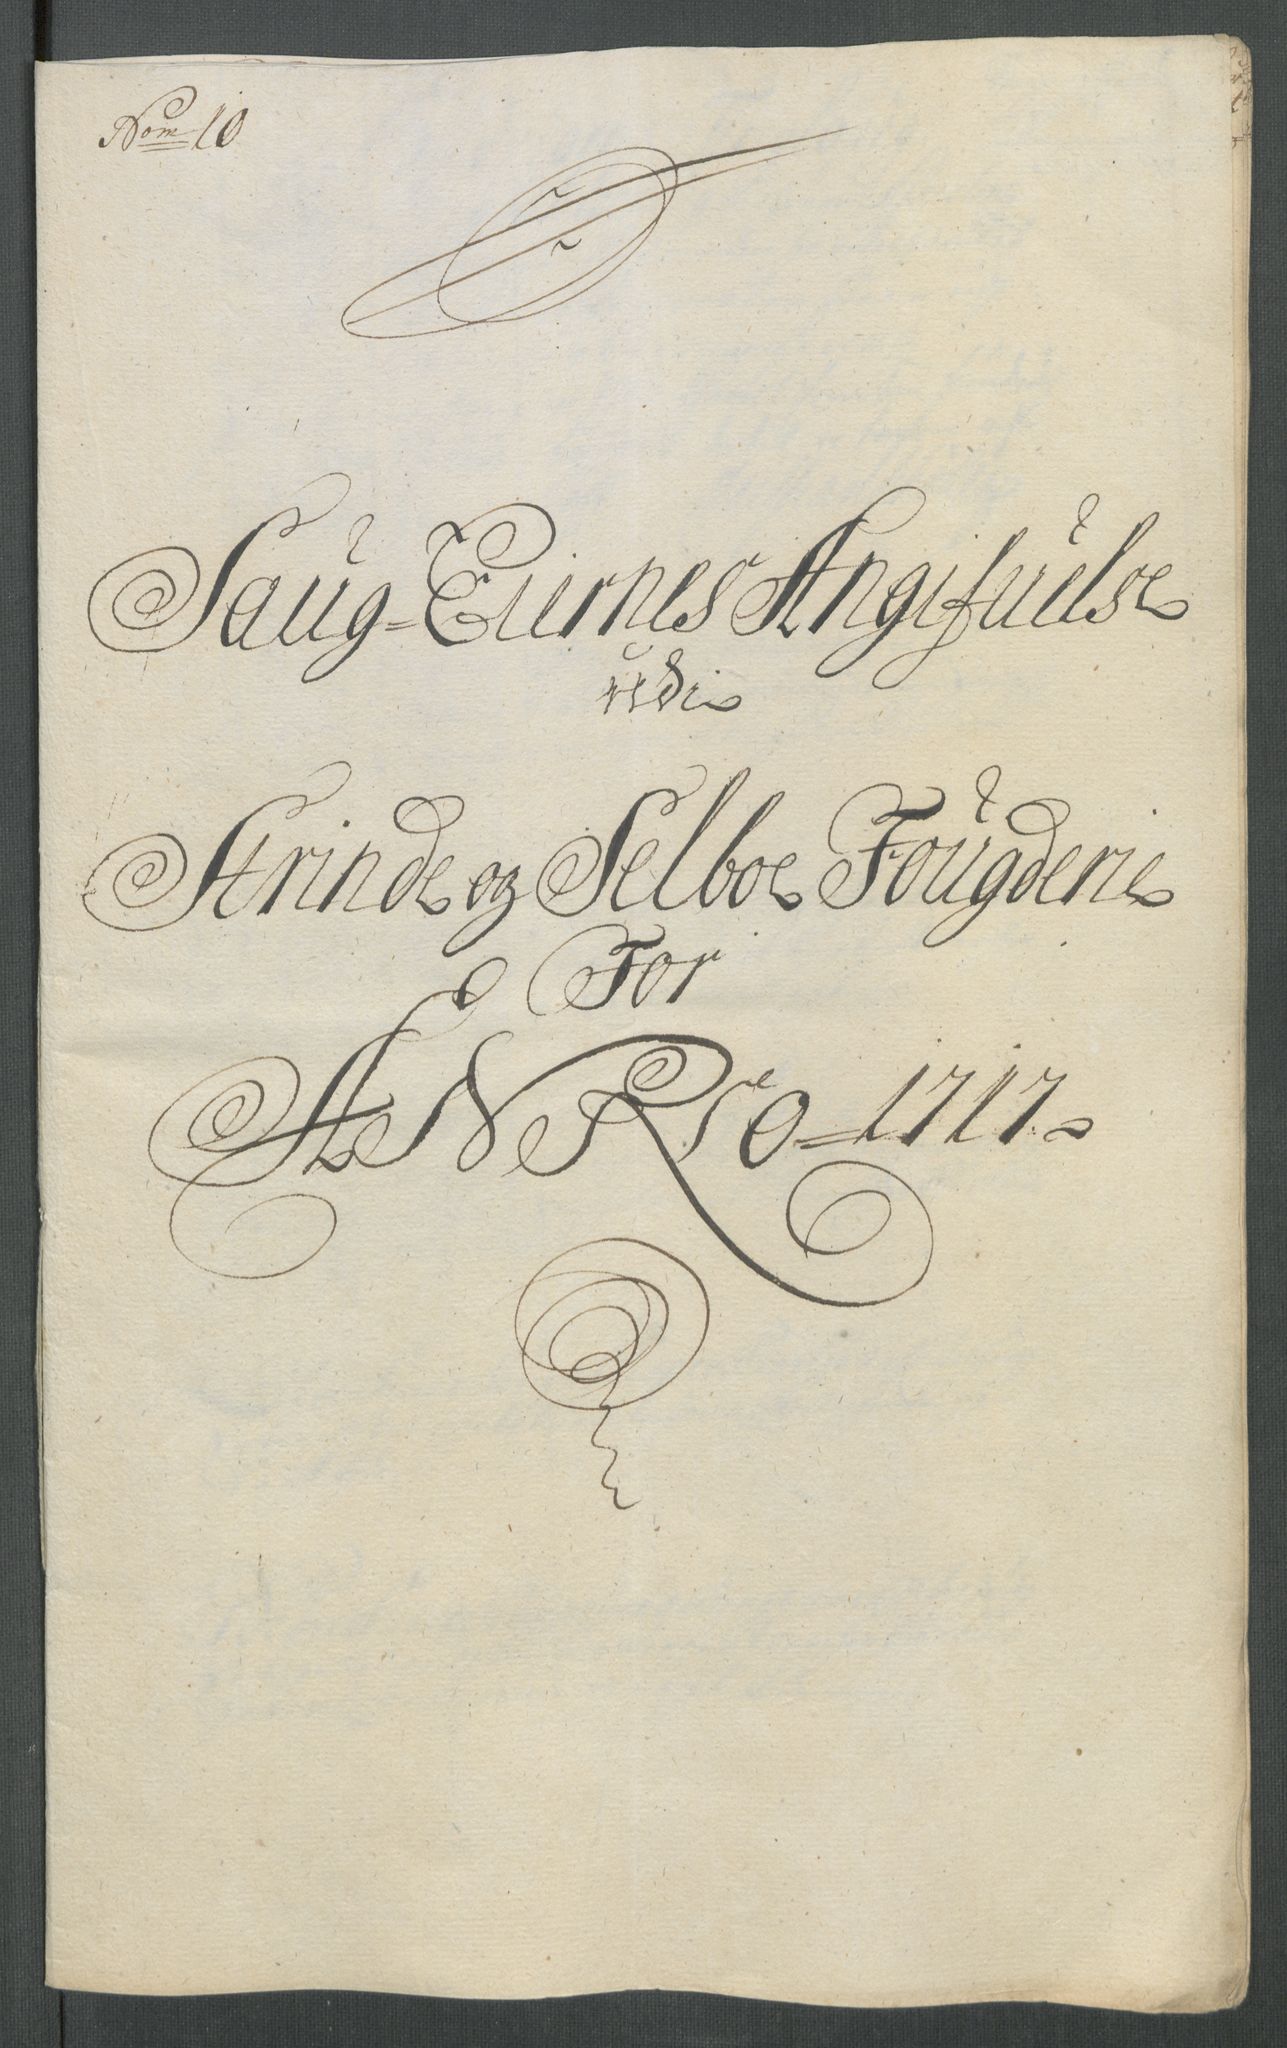 Nom 10
Saug-Eiernes Angifuelse
udi
Strinde og Selboe Fougderie
For
ANNO 1717